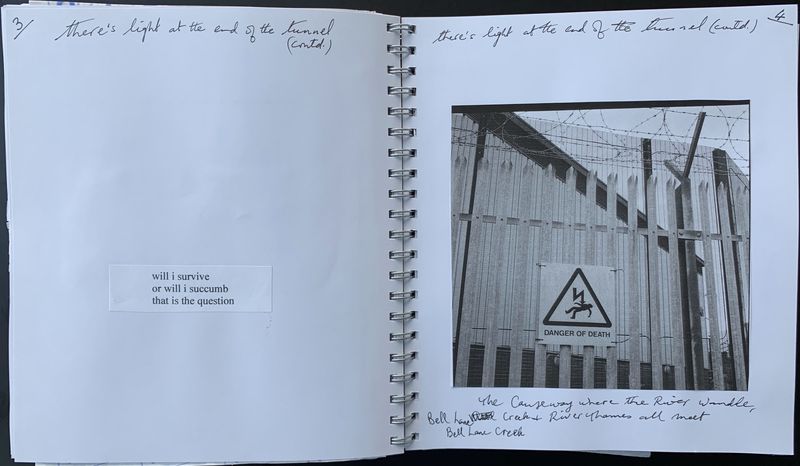 3/ there's light at the end of the tunnel
(contd.)
will i survive
or will i succumb
that is the question
4
there's light at the end of the tunnel (contd.)
DANGER OF DEATH
The Causeway where the River Wandle,
Bell Lane Creek & River Thames all meet
Bell Lane Creek